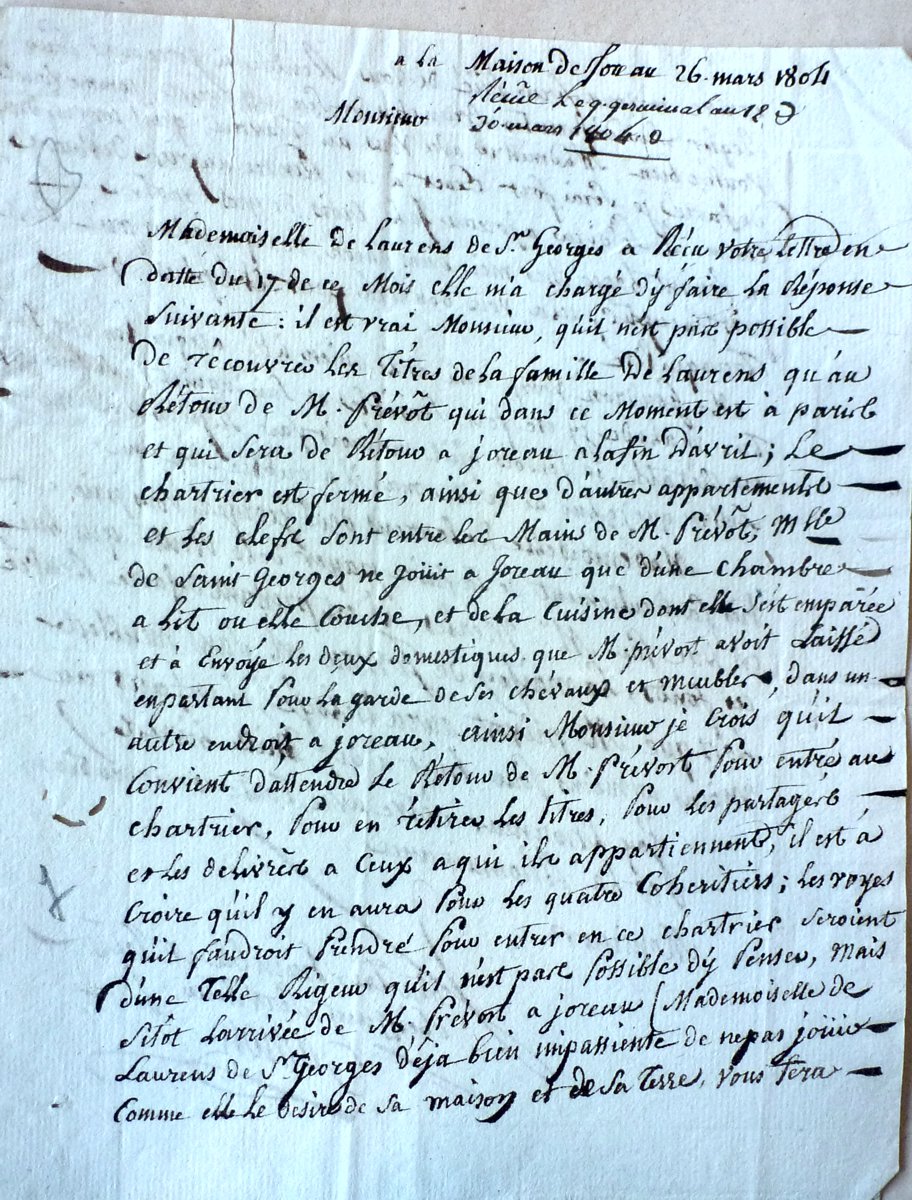 a la Maison de Joreau 26. mars 1804
Récüe Le 9. germinal an 12
Monsieur 30. mars 1804
Mademoiselle de Laurens de St. Georges a Réçu votre Lettre en
datté du 17 de ce Mois elle m'a chargé d'y faire la Réponse
suivante : il est vrai Monsieur, qu'il n'est pas possible
De récouvrer les Titres de la famille De Laurens qu'au
Rétour de M. Prévôt qui dans ce Moment est à paris
et qui sera de Rétour a joreau a la fin D'avril ; Le
chartrier est fermé, ainsi que d'autres appartements
et les clefs sont entre les Mains de M. Prévôt, Mlle
de Saint Georges ne joüit a Joreau que d'une chambre
a lit ou elle Couche, et de la Cuisine dont elle s'est emparée
et à Envoyé les deux domestiques que M. prévost avoit Laissé
en partant Pour la garde de ses chévaux et meubles, dans un
autre endroit a joreau, ainsi Monsieur je Crois qu'il
Convient d'attendre Le Rétour de M. Prévost Pour entré au
chartrier, Pour en rétirer les titres, Pour les partagérs
et les delivrèr a Ceux a qui ils appartiennent, il est à
Croire qu'il y en aura Pour les quatre Cohéritiers ; les voyes
qu'il faudroit Prendre Pour entrer en ce chartrier seroient
d'une Telle Rigeur qu'il n'est pas Possible d'y Penser, mais
sitôt L'arrivée de M. Prévost a joreau (Mademoiselle de
Laurens de St. Georges déja bien impassiente de ne pas joüir
Comme elle le desire de sa maison et de sa Terre, vous fera